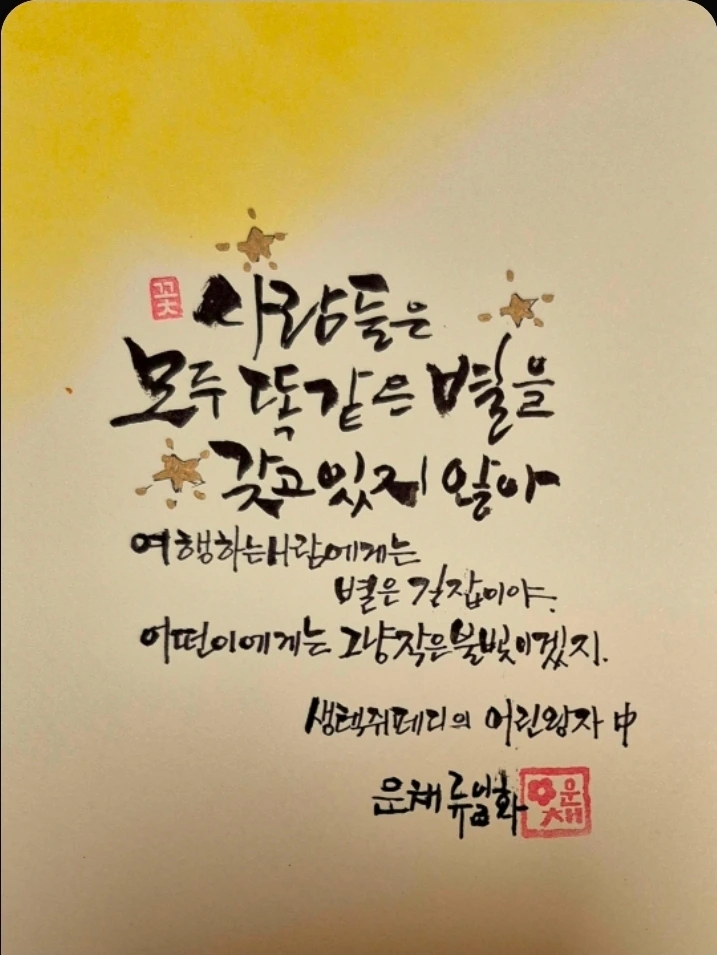 꽃
사람들은
모두 똑같은 별을
갖고 있지 않아
여행하는 사람에게는
별은 길잡이야.
어떤이에게는 그냥 작은 불빛이겠지.
생텍쥐페리의 어린왕자 中
운채 류남화
운채